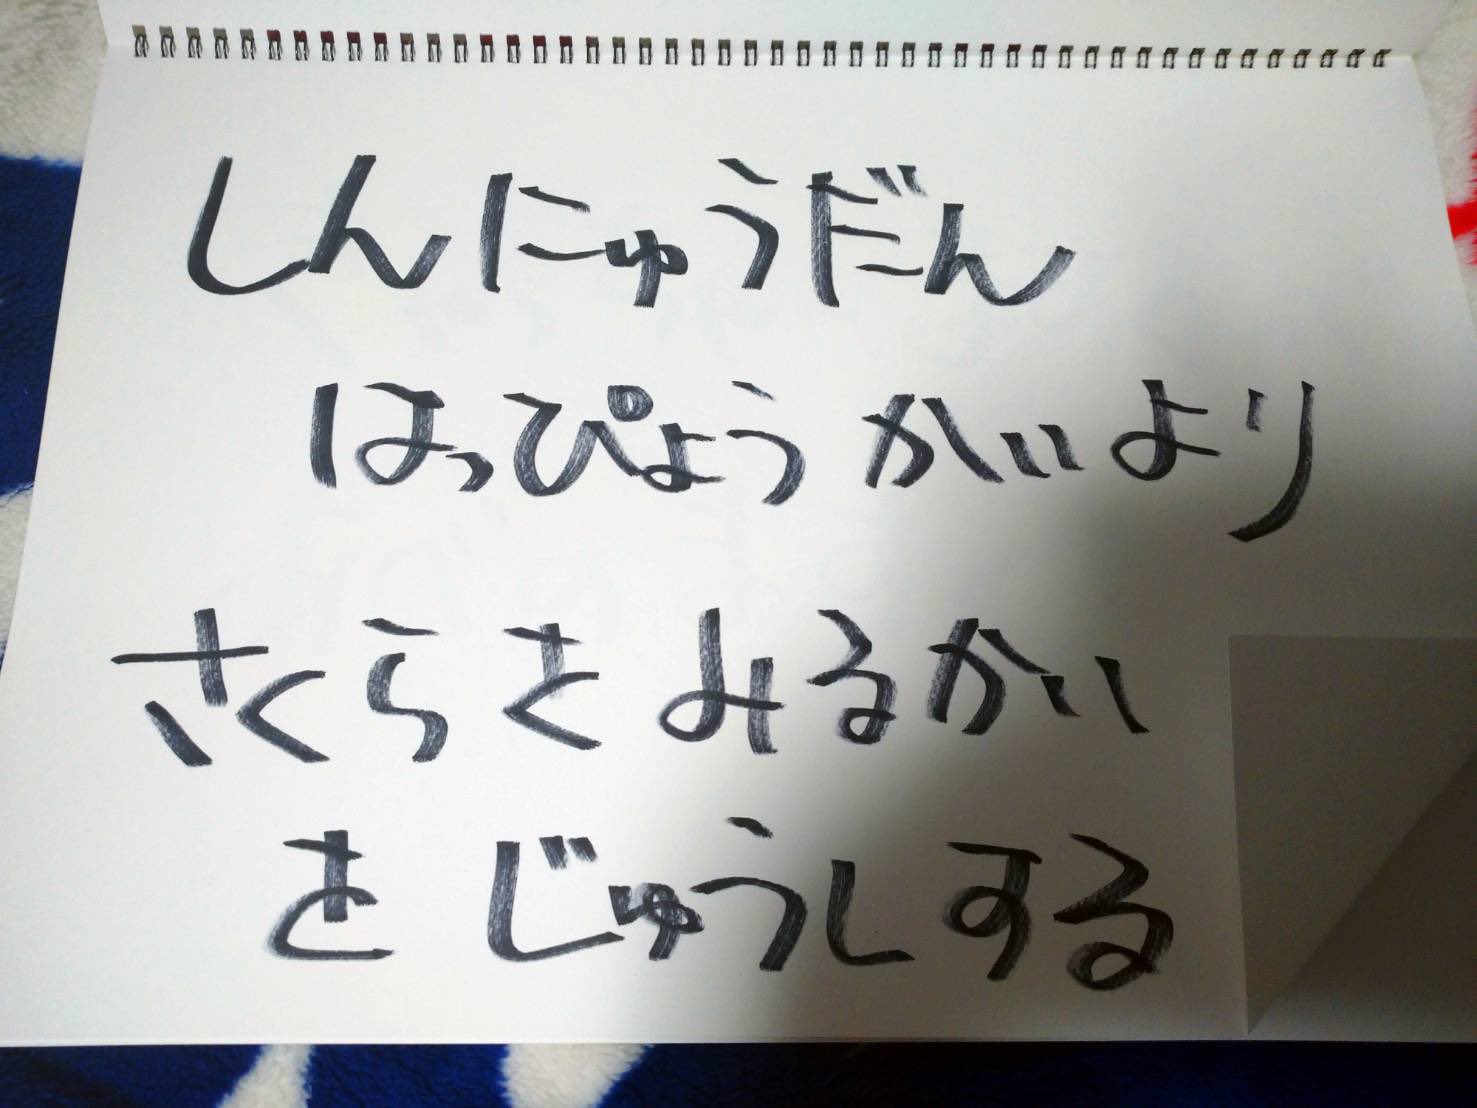 しんにゅうだん
はっぴょうかいより
さくらをみるかい
をじゅうしする